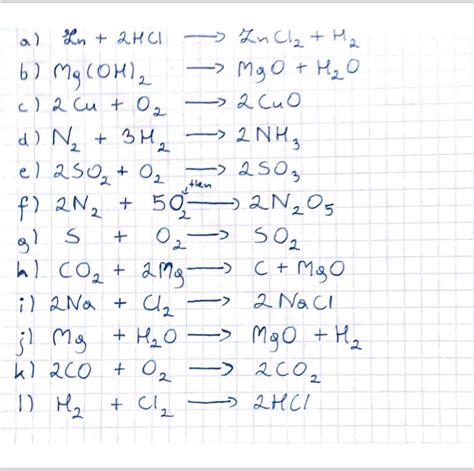 a) Zn + 2HCl → ZnCl₂ + H₂
b) Mg(OH)₂ → MgO + H₂O
c) 2Cu + O₂ → 2CuO
d) N₂ + 3H₂ → 2NH₃
e) 2SO₂ + O₂ → 2SO₃
then
f) 2N₂ + 5O₂ → 2N₂O₅
g) S + O₂ → SO₂
h) CO₂ + 2Mg → C + MgO
i) 2Na + Cl₂ → 2NaCl
j) Mg + H₂O → MgO + H₂
k) 2CO + O₂ → 2CO₂
l) H₂ + Cl₂ → 2HCl